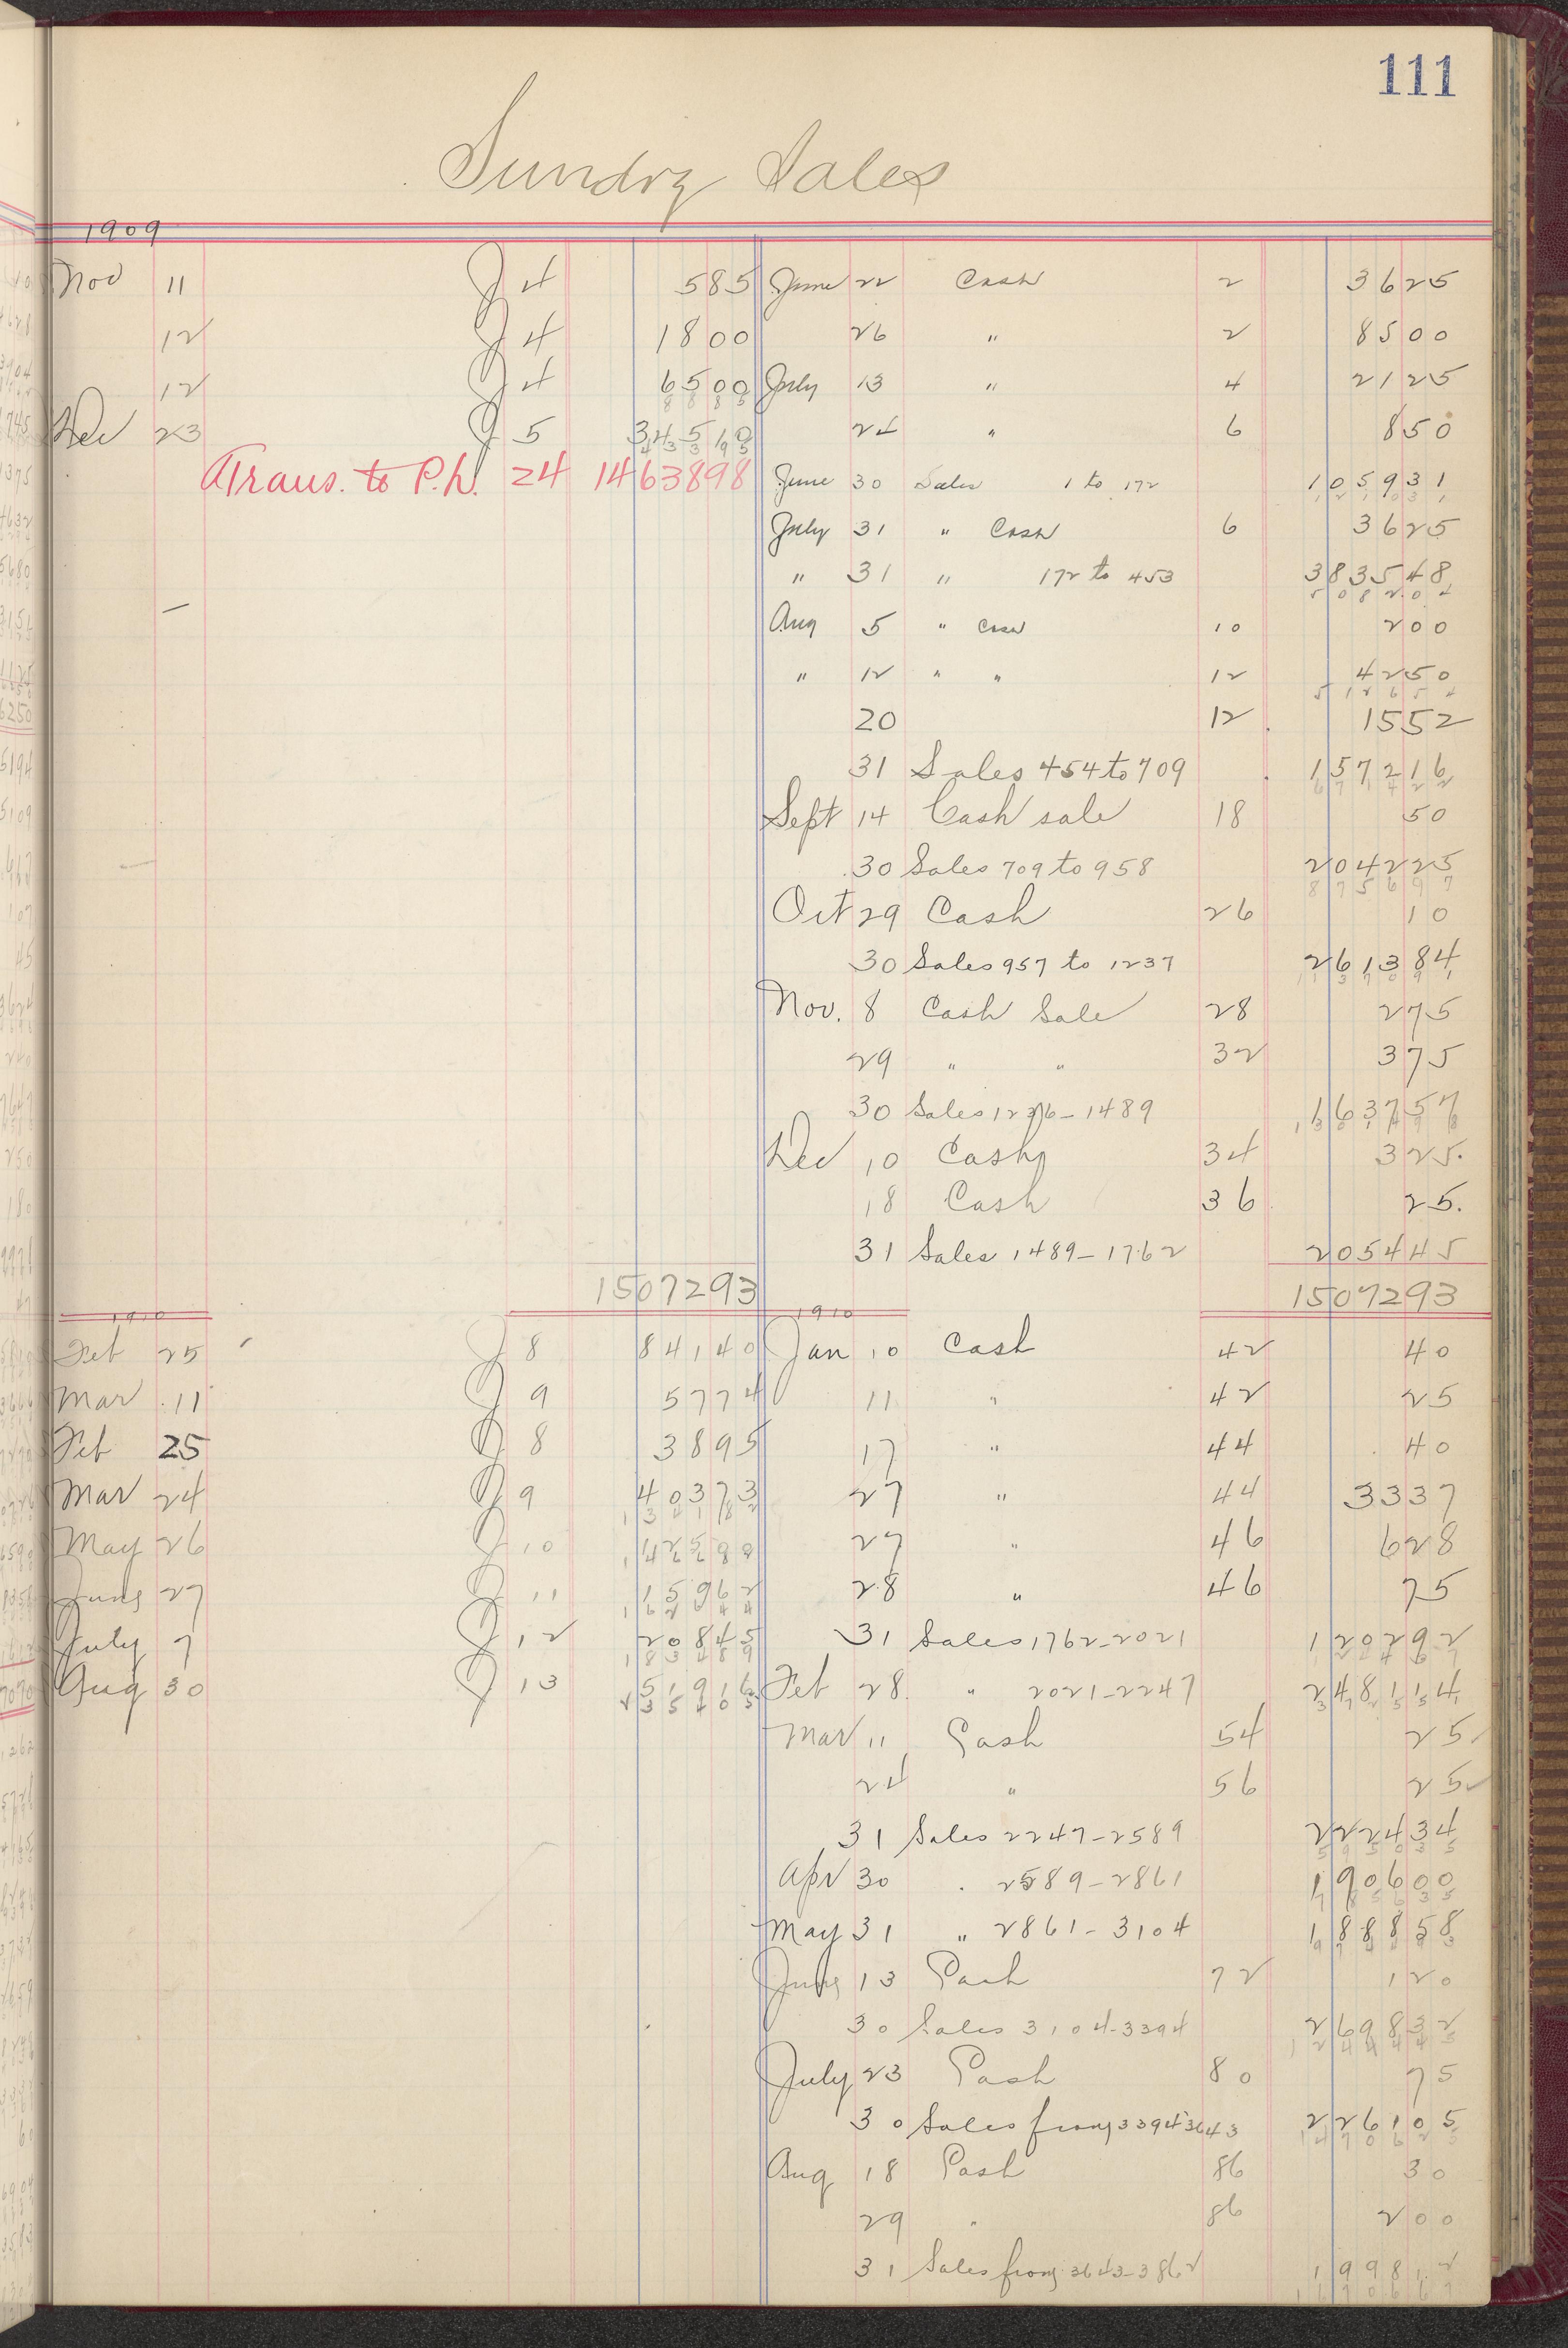 111
Sundry Sales
1909
Nov 11 J 4 585 June 22 Cash 2 3625
12 J 4 1800 26 " 2 8500
12 J 4 6500 July 13 " 4 2125
8885
Dec 23 J 5 34510 24 " 6 850
433195
Trans. to P.L. 24 1463898 June 30 Sales 1 to 172 105931
July 31 " Cash 6 3625
" 31 " 172 to 453 383548
508204
Aug 5 " Cash 10 200
" 12 " " 12 4250
512654
20 12 1552
31 Sales 454 to 709 157216
671422
Sept 14 Cash sale 18 50
30 Sales 709 to 958 204225
875697
Oct 29 Cash 26 10
30 Sales 957 to 1237 261384
1137091
Nov. 8 Cash Sale 28 275
29 " " 32 375
30 Sales 1236-1489 163757
Dec 10 Cash 34 325.
18 Cash 36 25.
31 Sales 1489-1762 205445
1507293 1507293
1910 1910
Feb 25 J 8 84140 Jan 10 Cash 42 40
Mar 11 J 9 5774 11 " 42 25
Feb 25 J 8 3895 17 " 44 40
Mar 24 J 9 40373 27 " 44 3337
134182
May 26 J 10 27 " 46 628
June 27 J 11 15962 28 " 46 75
July 7 J 12 20845 31 Sales 1762-2021 120292
183489
Aug 30 J 13 51916 Feb 28 " 2021-2247 248114
235405
Mar 11 Cash 54 25
24 " 56 25
31 Sales 2247-2589 222434
595035
Apr 30 . 2589-2861 190600
785635
May 31 " 2861-3104 188858
June 13 Cash 72 120
30 Sales 3104-3394 269832
1244445
July 23 Cash 80 75
30 Sales from 3394 3643 226105
1470625
Aug 18 Cash 86 30
29 " 86 200
31 Sales from 3643-3862 199812
1670667